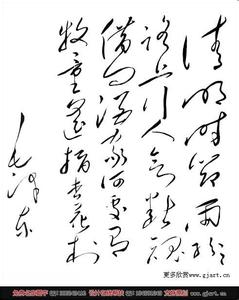 清明时节雨纷纷
路上行人欲断魂
借问酒家何处有
牧童遥指杏花村
毛泽东
更多欣赏www.gjart.cn
www.gjart.cn